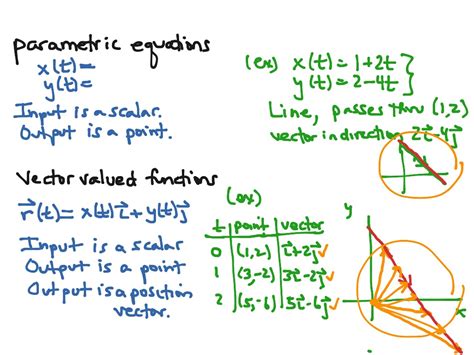 parametric equations
x(t)=
y(t)=
Input is a scalar.
Output is a point.
(ex) x(t)=1+2t
y(t)=2-4t
Line, passes thru (1,2)
vector in direction 2i⃗-4j⃗
Vector valued functions
r⃗(t)=x(t)i⃗+y(t)j⃗
Input is a scalar
Output is a point
Output is a position
vector.
(ex)
t point vector
0 (1,2) i⃗+2j⃗ ✓
1 (3,-2) 3i⃗-2j⃗ ✓
2 (5,-6) 5i⃗-6j⃗ ✓
y
x